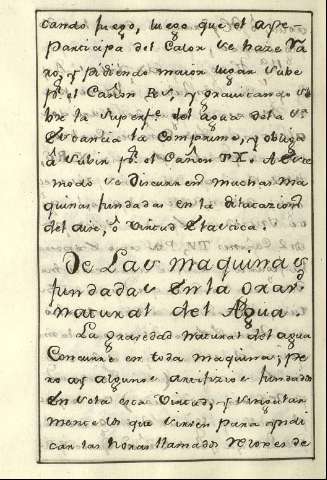 cando fuego, luego que el ayre
participa del Calor se haze ra
ro, y pidiendo maior lugar sube
pr. el Cañon RS, y gravitando so
bre la superfe. del agua dela 2ª.
Estancia la Comprime, y obliga
â subir pr. el Cañon TX. A este
modo se discurren muchas ma
quinas fundadas en la dilatacion
del aire, ô virtud Elastica.
De Las maquinas
fundadas en la gravd.
natural del Agua
La gravedad natural del agua
Concurre en toda maquina; pe
ro ay algunos artifizios fundados
en sola esta virtud, y singular
mente los que sirven para yndi
car las horas llamados reloxes de